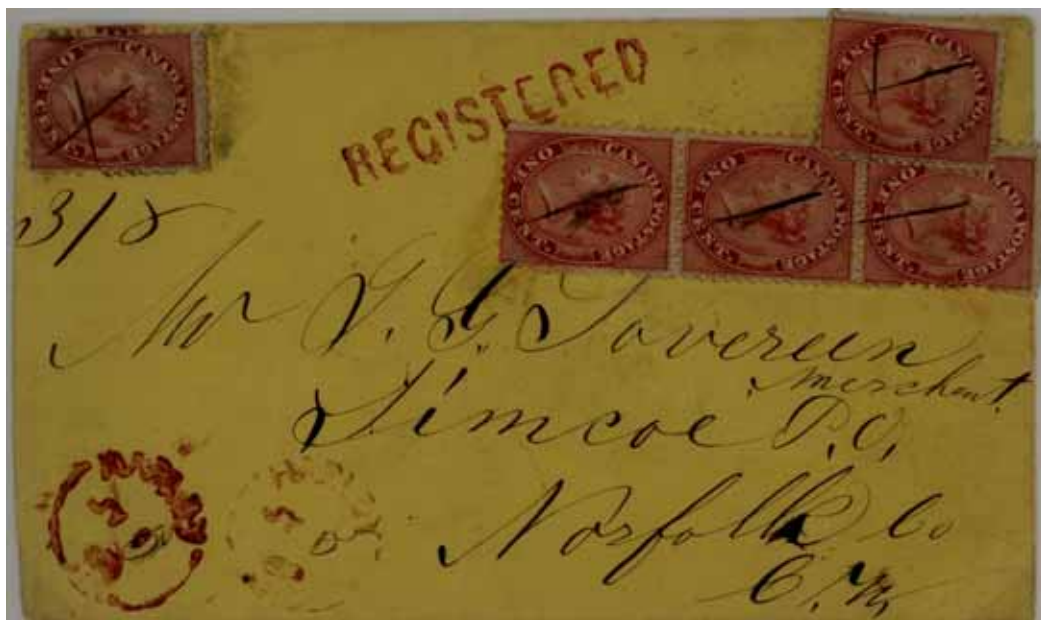 CANADA POSTAGE ONE CENT
CANADA POSTAGE ONE CENT
REGISTERED
CANADA POSTAGE ONE CENT
CANADA POSTAGE ONE CENT
CANADA POSTAGE ONE CENT
3/8
Mr J. G. Sovereen
merchant.
Simcoe P.O.
Norfolk Co
C.W.